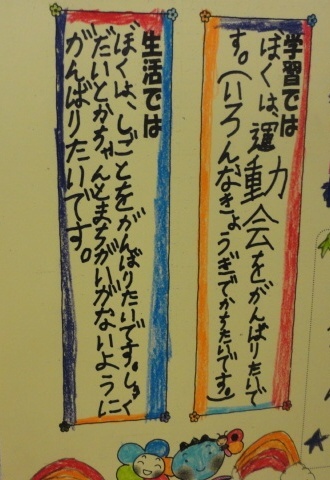 学習では
ぼくは、運動会をがんばりたいで
す。(いろんなきょうぎでかちたいです。)
生活では
ぼくは、しごとをがんばりたいです。しょく
だいとかちゃんとまちがいがないように
がんばりたいです。